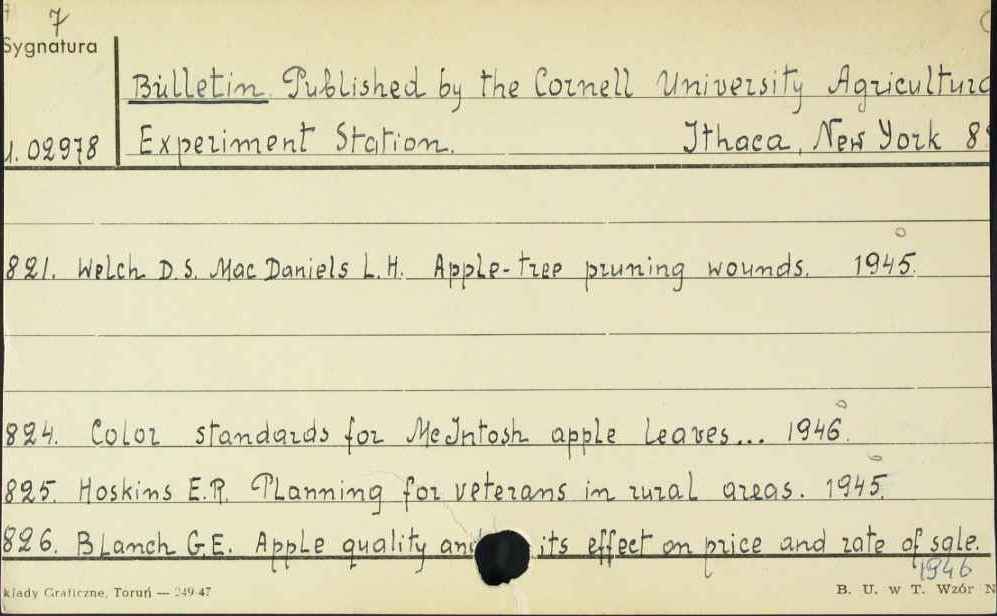 7
Sygnatura
Bulletin Published by the Cornell University Agricultura
1.02978 Experiment Station. Ithaca, New York 8
821. Welch D.S. MacDaniels L.H. Apple-tree pruning wounds. 1945.
824. Color standards for McIntosh apple leaves... 1946.
825. Hoskins E.R. Planning for veterans in rural areas. 1945.
826. Blanch G.E. Apple quality and its effect on price and rate of sale.
1946
kłady Graficzne, Toruń — 249 47 B. U. w T. Wzór N